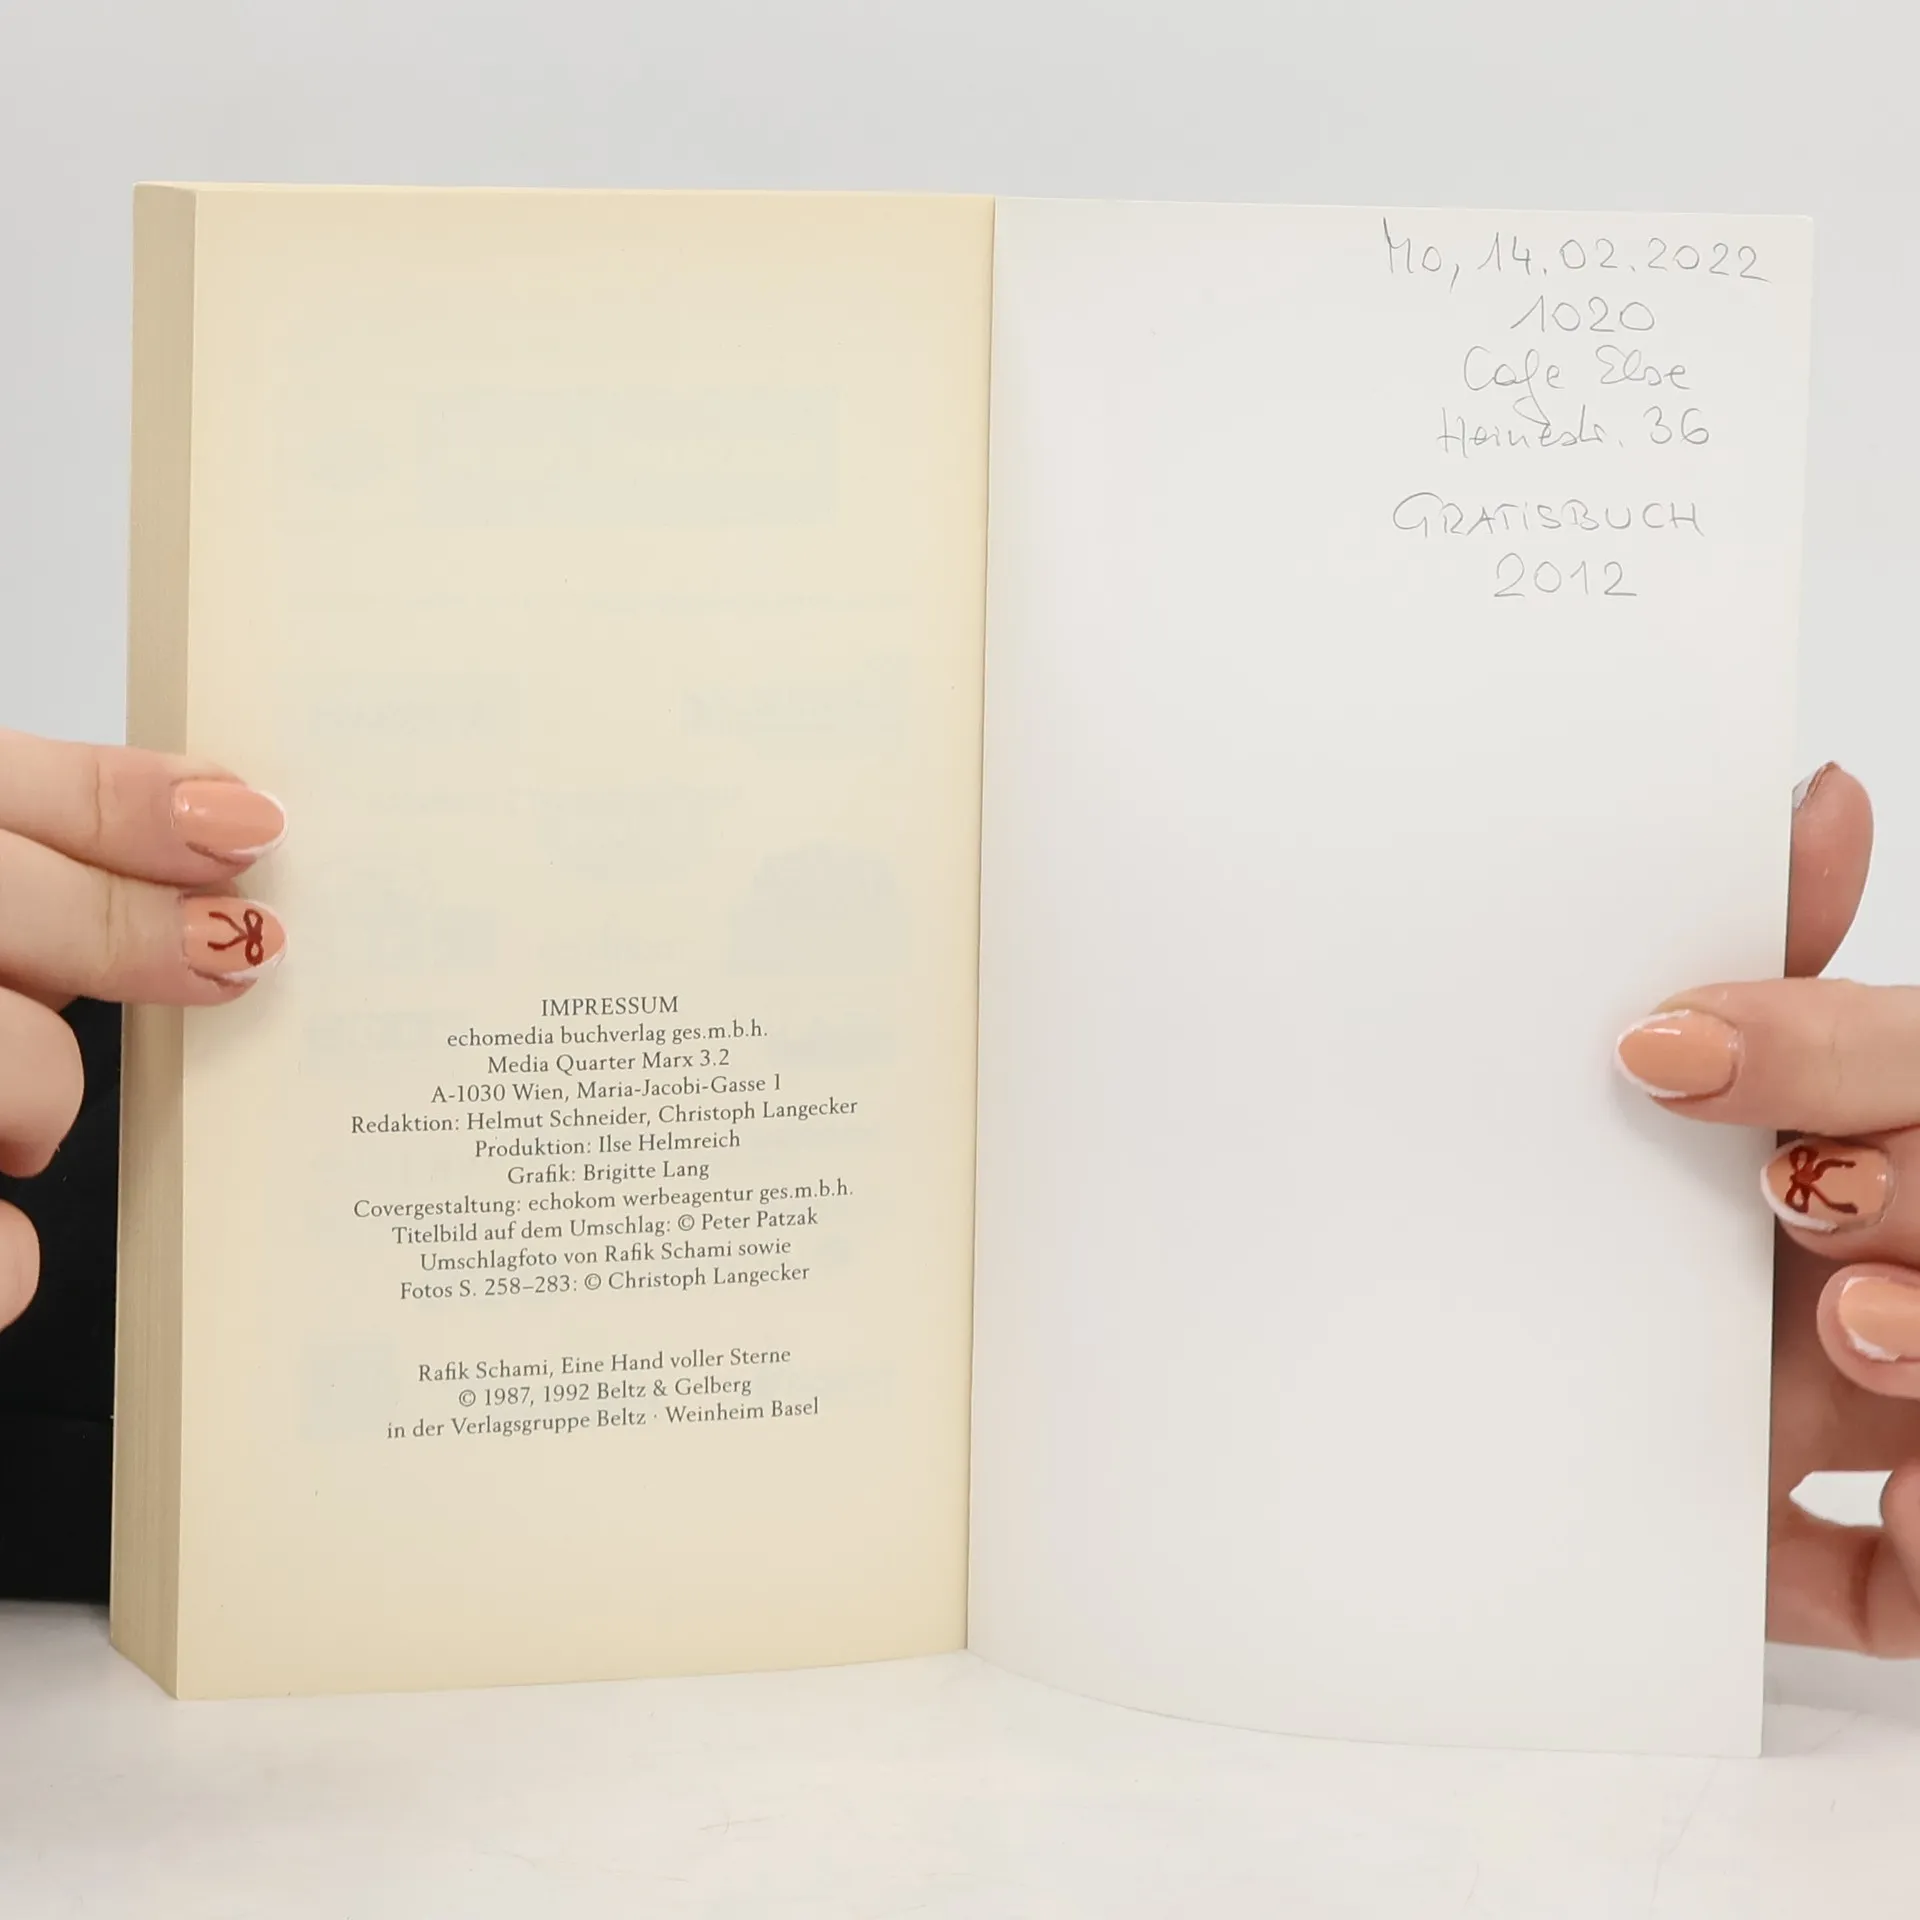 IMPRESSUM
echomedia buchverlag ges.m.b.h.
Media Quarter Marx 3.2
A-1030 Wien, Maria-Jacobi-Gasse 1
Redaktion: Helmut Schneider, Christoph Langecker
Produktion: Ilse Helmreich
Grafik: Brigitte Lang
Covergestaltung: echokom werbeagentur ges.m.b.h.
Titelbild auf dem Umschlag: © Peter Patzak
Umschlagfoto von Rafik Schami sowie
Fotos S. 258–283: © Christoph Langecker
Rafik Schami, Eine Hand voller Sterne
© 1987, 1992 Beltz & Gelberg
in der Verlagsgruppe Beltz · Weinheim Basel
Mo, 14.02.2022
1020
Cafe Else
Heinestr. 36
GRATISBUCH
2012